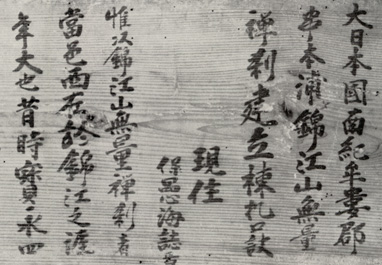 大日本國南紀牟婁郡
串本浦錦江山無量
禅刹建立棟札
現住
海誌
惟錦江山無量禅刹者
當邑西錦江之
年大也昔時寳永四